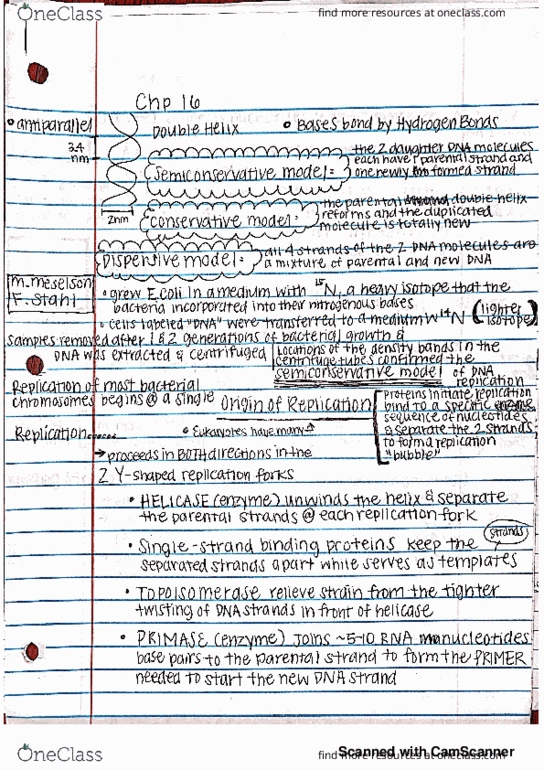 OneClass
find more resources at oneclass.com
Chp 16
• antiparallel
Double Helix • Bases bond by Hydrogen Bonds
3.4 nm
2nm
Semiconservative model:
the 2 daughter DNA molecules
each have 1 parental strand and
one newly formed strand
conservative model:
the parental double helix
reforms and the duplicated
molecule is totally new
Dispersive model:
all 4 strands of the 2 DNA molecules are
a mixture of parental and new DNA
M. Meselson
F. Stahl
• grew E.coli in a medium with ¹⁵N, a heavy isotope that the
bacteria incorporated into their nitrogenous bases
• cells labeled "DNA" were transferred to a medium W ¹⁴N (lighter isotope)
samples removed after 1 & 2 generations of bacterial growth &
DNA was extracted & centrifuged
Locations of the density bands in the
centrifuge tubes confirmed the
semiconservative model of DNA
replication
Replication of most bacterial
chromosomes begins @ a single Origin of Replication
• Eukaryotes have many
Proteins initiate replication
bind to a specific
sequence of nucleotides
& separate the 2 strands
to form a replication
"bubble"
Replication......
→ proceeds in BOTH directions in the
2 Y-shaped replication forks
• HELICASE (enzyme) unwinds the helix & separate
the parental strands @ each replication fork
• Single-strand binding proteins keep the
strands
separated strands apart while serves as templates
• TOPOISOMERASE relieve strain from the tighter
twisting of DNA strands in front of helicase
• PRIMASE (enzyme) joins ~5-10 RNA nucleotides
base pairs to the parental strand to form the PRIMER
needed to start the new DNA strand
OneClass
find more resources at oneclass.com
Scanned with CamScanner